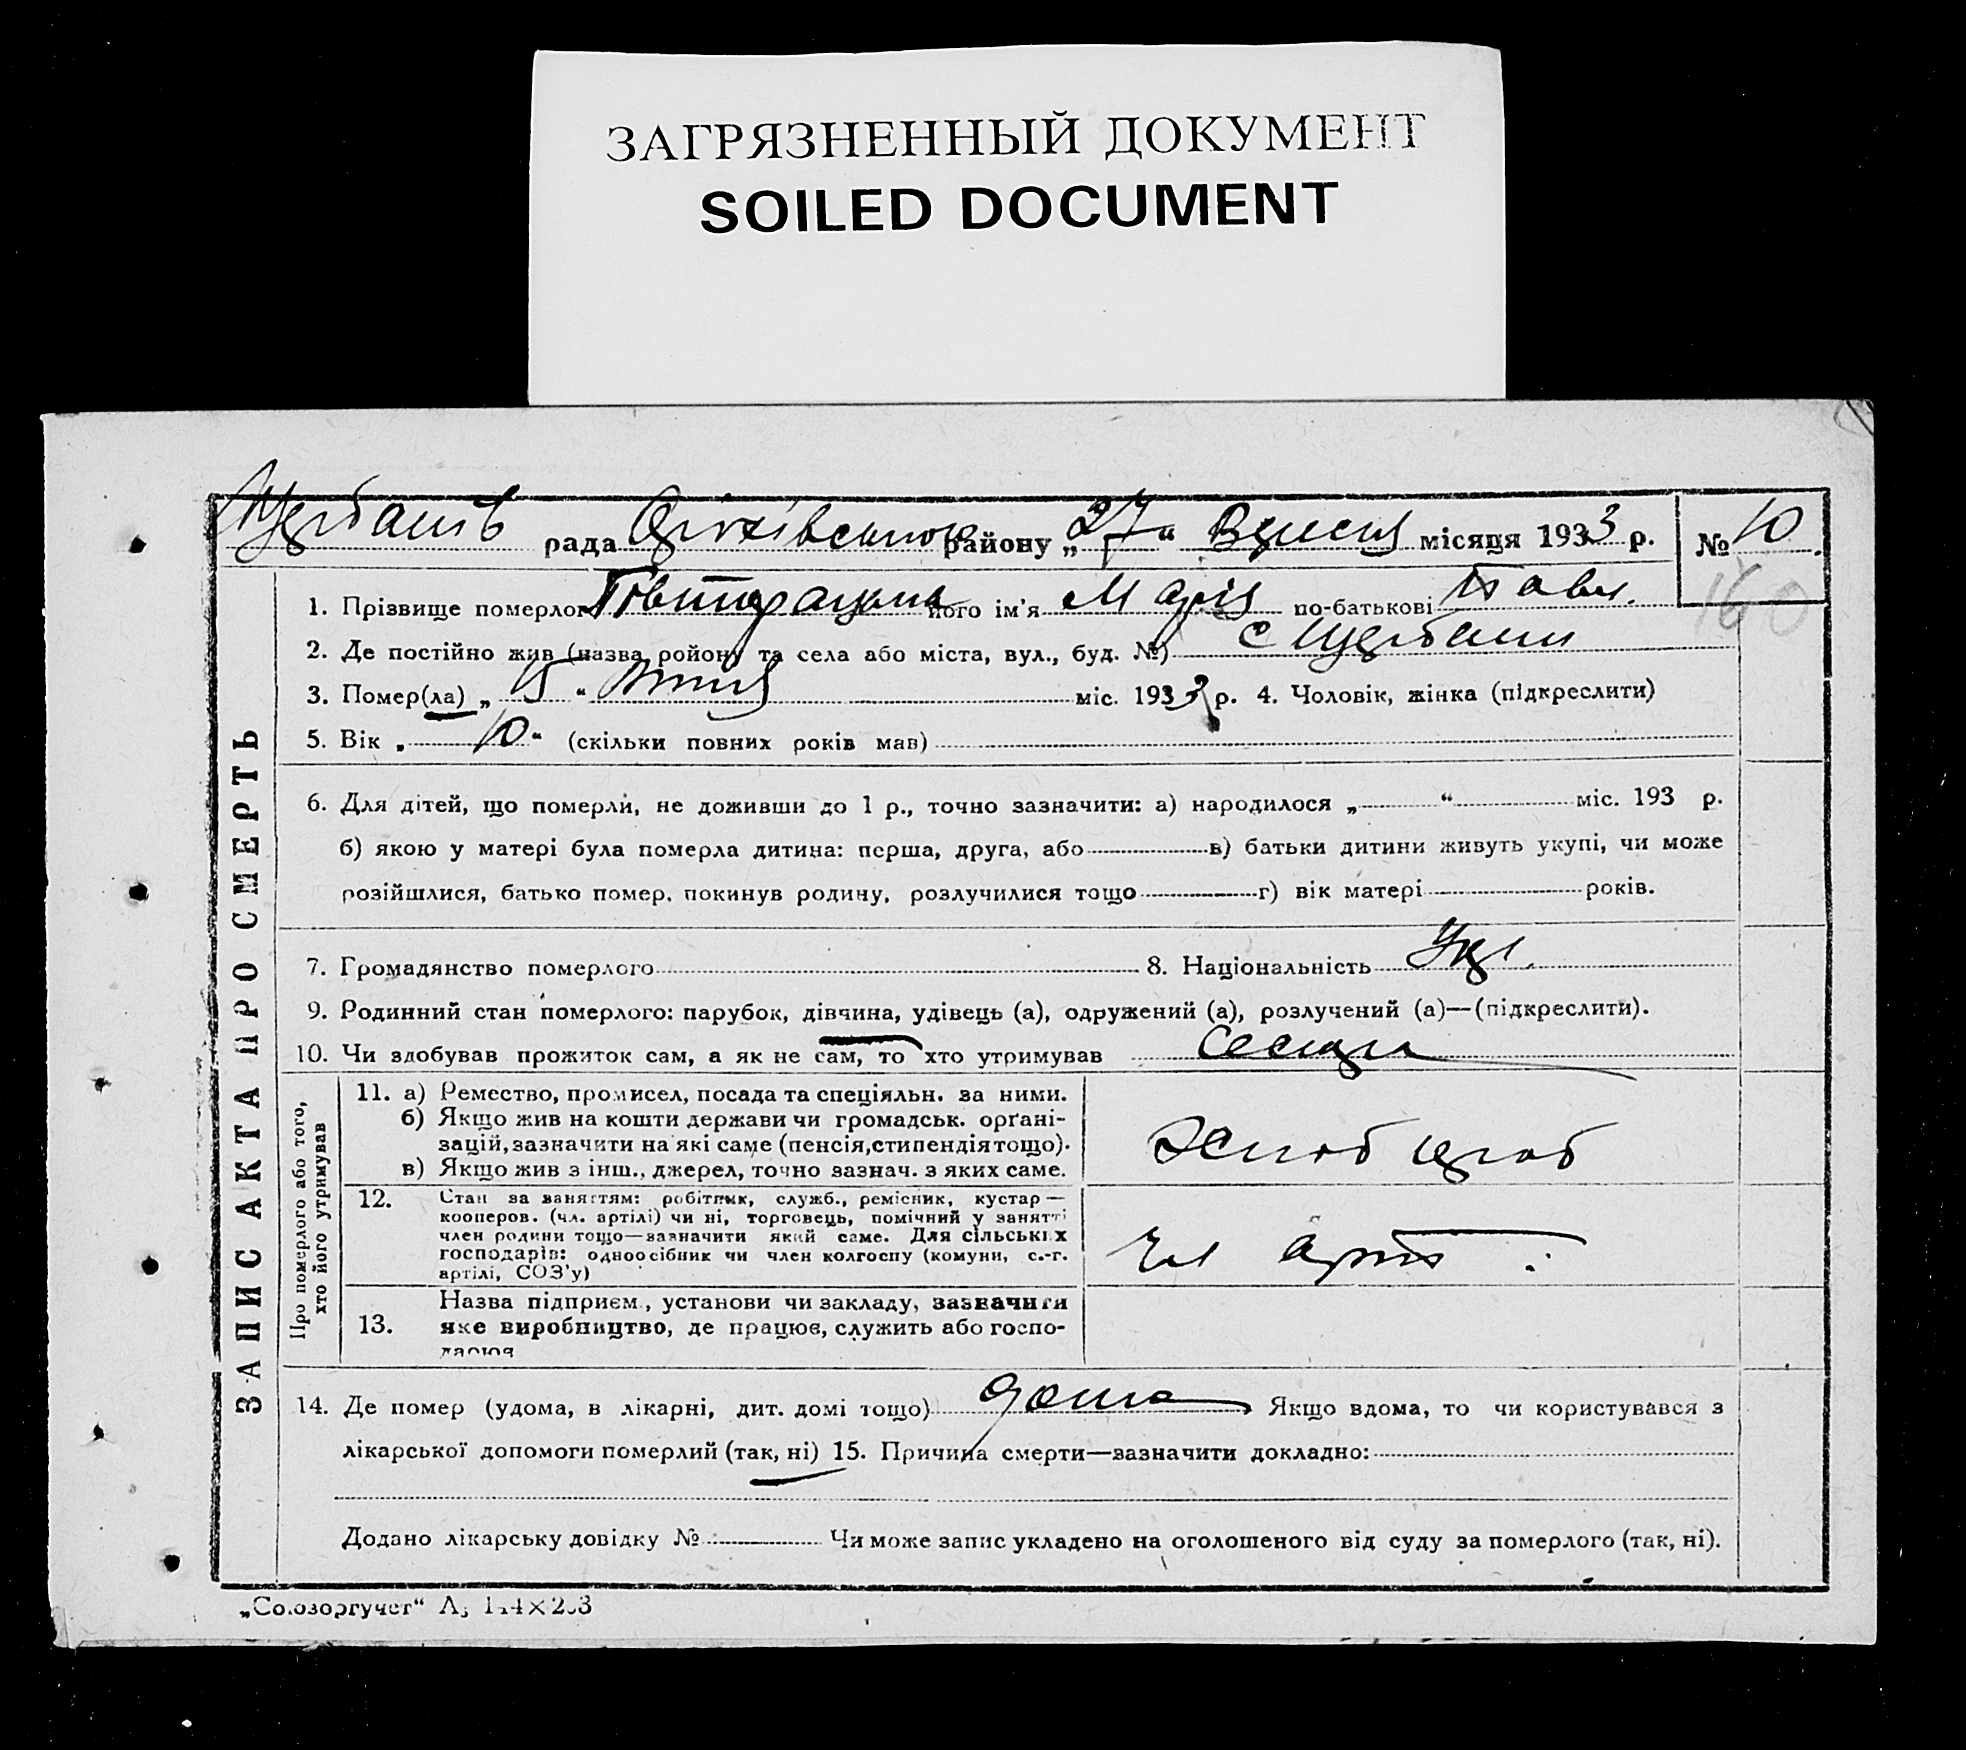 ЗАГРЯЗНЕННЫЙ ДОКУМЕНТ
SOILED DOCUMENT
рада району „27“ місяця 1933 р. № 10
160
ЗАПИС АКТА ПРО СМЕРТЬ
1. Прізвище померлого його ім'я Марія по-батькові Павл.
2. Де постійно жив (назва ройону та села або міста, вул., буд. №) с Щербани
3. Помер(ла) „15“ міс. 1933 р. 4. Чоловік, жінка (підкреслити)
5. Вік „10“ (скільки повних років мав)
6. Для дітей, що померли, не доживши до 1 р., точно зазначити: а) народилося „ “ міс. 193 р.
б) якою у матері була померла дитина: перша, друга, або в) батьки дитини живуть укупі, чи може
розійшлися, батько помер, покинув родину, розлучилися тощо г) вік матері років.
7. Громадянство померлого 8. Національність Укр.
9. Родинний стан померлого: парубок, дівчина, удівець (а), одружений (а), розлучений (а)—(підкреслити).
10. Чи здобував прожиток сам, а як не сам, то хто утримував
Про померлого або того,
хто його утримував
11. а) Ремество, промисел, посада та спеціяльн. за ними.
б) Якщо жив на кошти держави чи громадськ. орґані-
зацій, зазначити на які саме (пенсія, стипендія тощо).
в) Якщо жив з інш., джерел, точно зазнач. з яких саме.
Хлібороб
12. Стан за заняттям: робітник, служб., ремісник, кустар—
кооперов. (чл. артілі) чи ні, торговець, помічний у занятті
член родини тощо—зазначити який саме. Для сільських
господарів: одноосібник чи член колгоспу (комуни, с.-г.
артілі, СОЗ'у)
Чл арт
13. Назва підприєм., установи чи закладу, зазначити
яке виробництво, де працює, служить або госпо-
дарює
14. Де помер (удома, в лікарні, дит. домі тощо) дома Якщо вдома, то чи користувався з
лікарської допомоги померлий (так, ні) 15. Причина смерти—зазначити докладно:
Додано лікарську довідку № Чи може запис укладено на оголошеного від суду за померлого (так, ні).
„Союзоргучет“